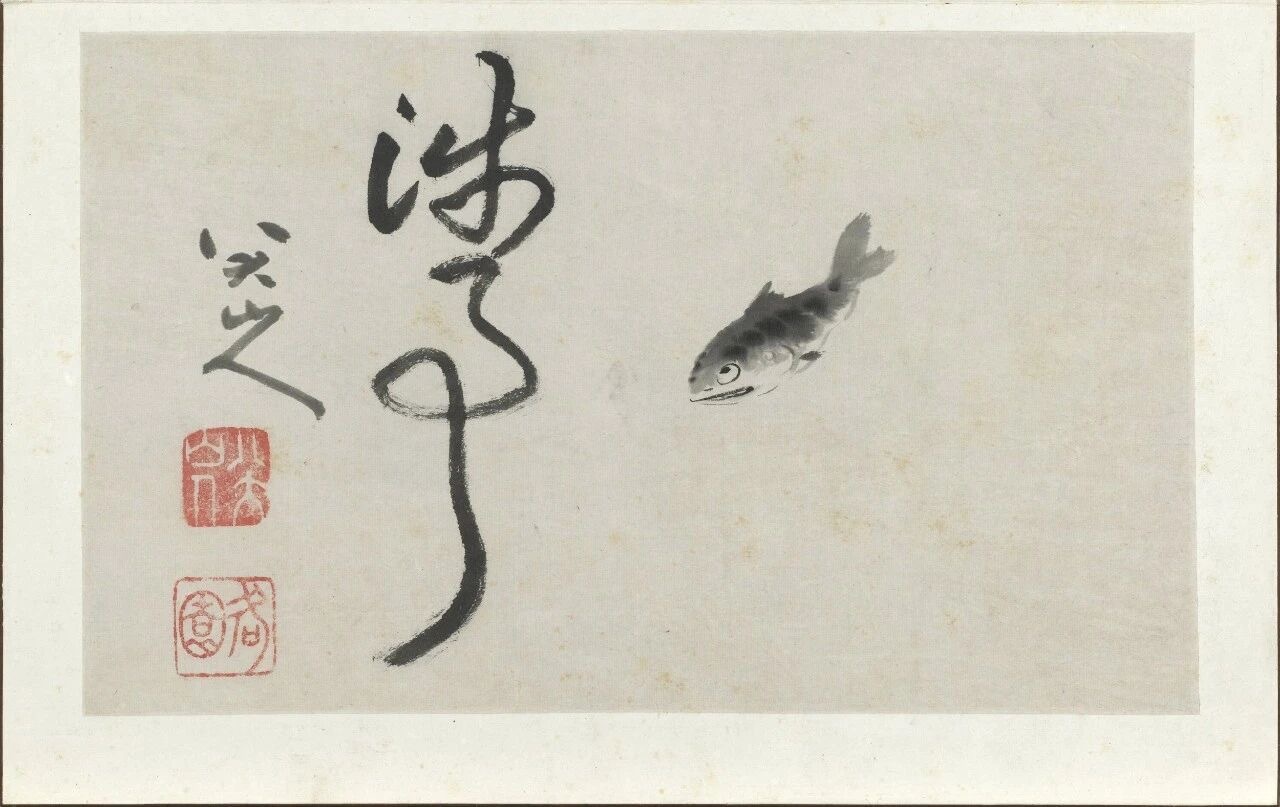 涉事
八大山人
八大山人